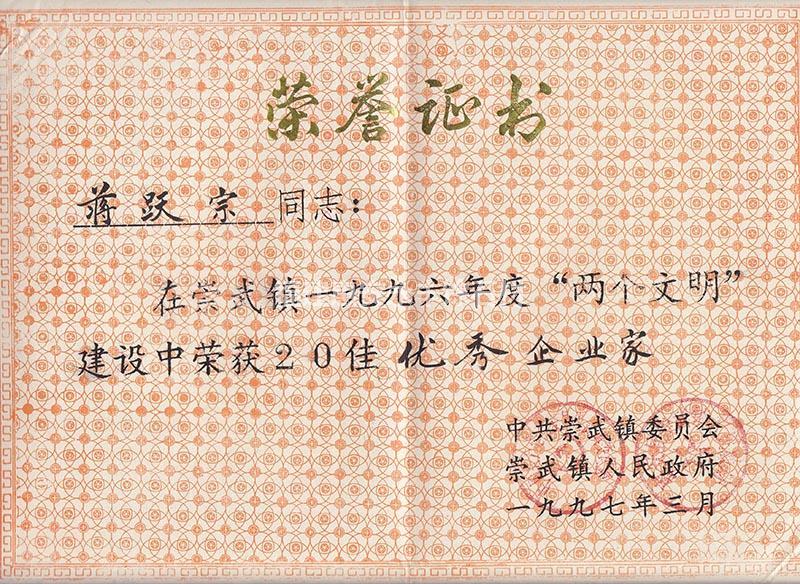 荣誉证书
蒋跃宗 同志：
在崇武镇一九九六年度“两个文明”
建设中荣获20佳优秀企业家
中共崇武镇委员会
崇武镇人民政府
一九九七年三月